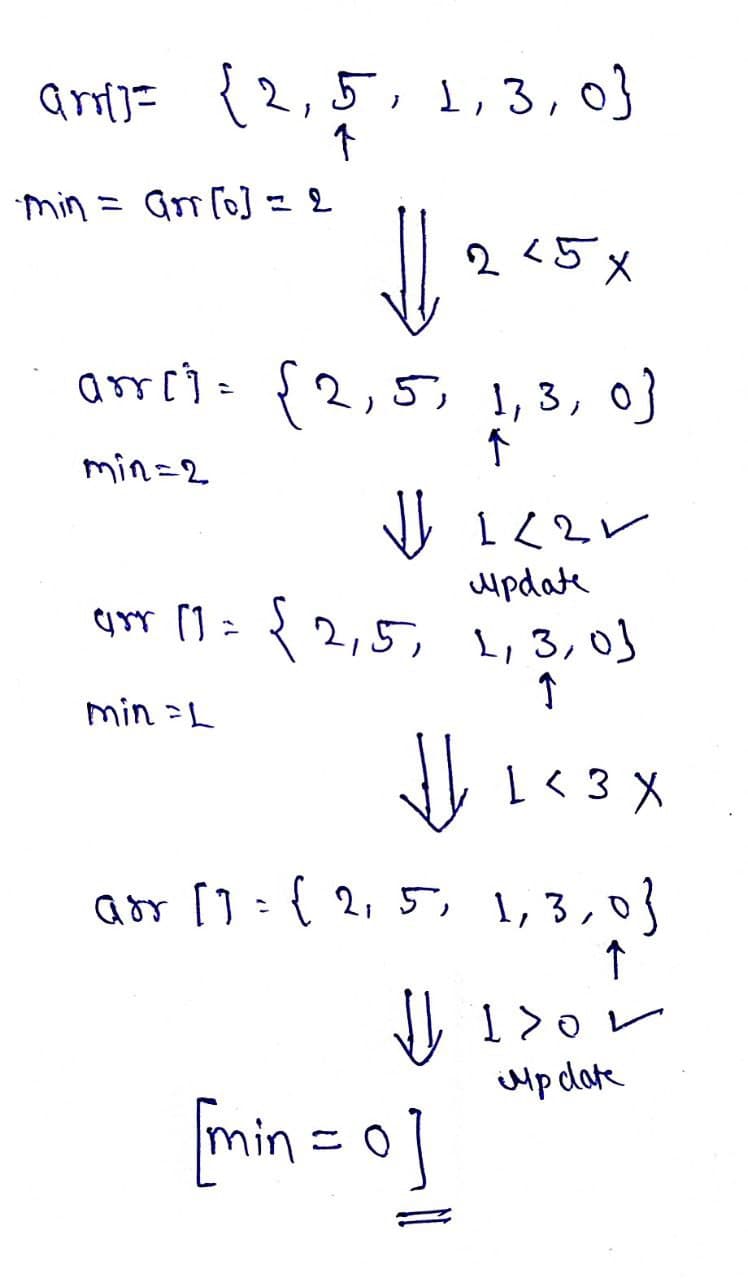 arr[]= {2, 5, 1, 3, 0}
↑
min = arr[0] = 2
2 <5 X
arr[]= {2, 5, 1, 3, 0}
↑
min=2
1<2 ✓
update
arr []= {2,5, 1, 3, 0}
↑
min =1
1< 3 X
arr []={ 2, 5, 1, 3, 0}
↑
1>0 ✓
update
[min = 0]